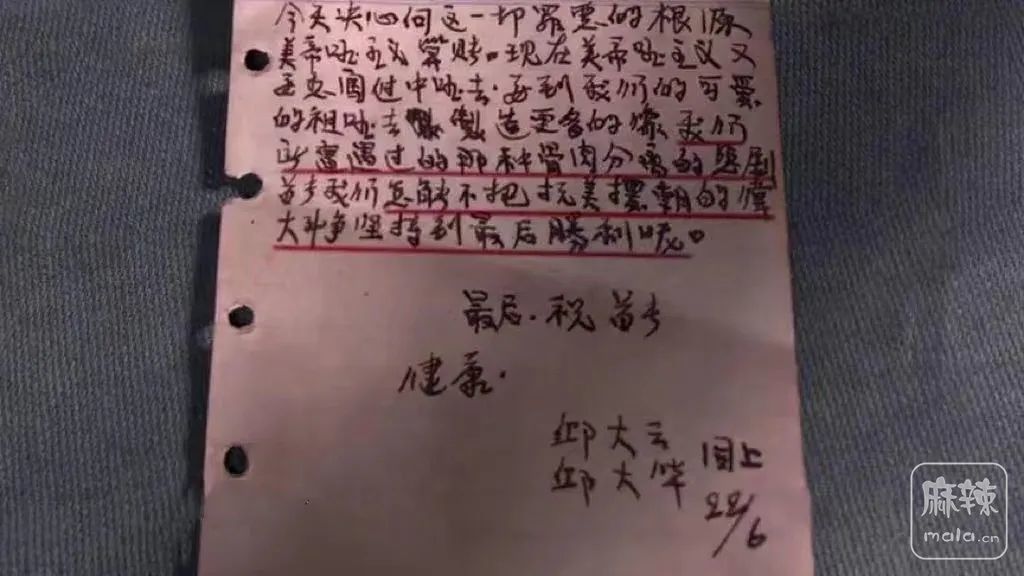 今天决心向这一切罪恶的根源
美帝国主义算账。现在美帝国主义又
正在通过中国去,再到我们的可爱
的祖国去製造更多的像我们
所遭遇过的那种骨肉分离的悲剧
我们怎能不把抗美援朝的伟
大斗争坚持到最后勝利呢。
最后.祝
健康.
邱大云
邱大华 同上
22/6
麻辣
mala.cn